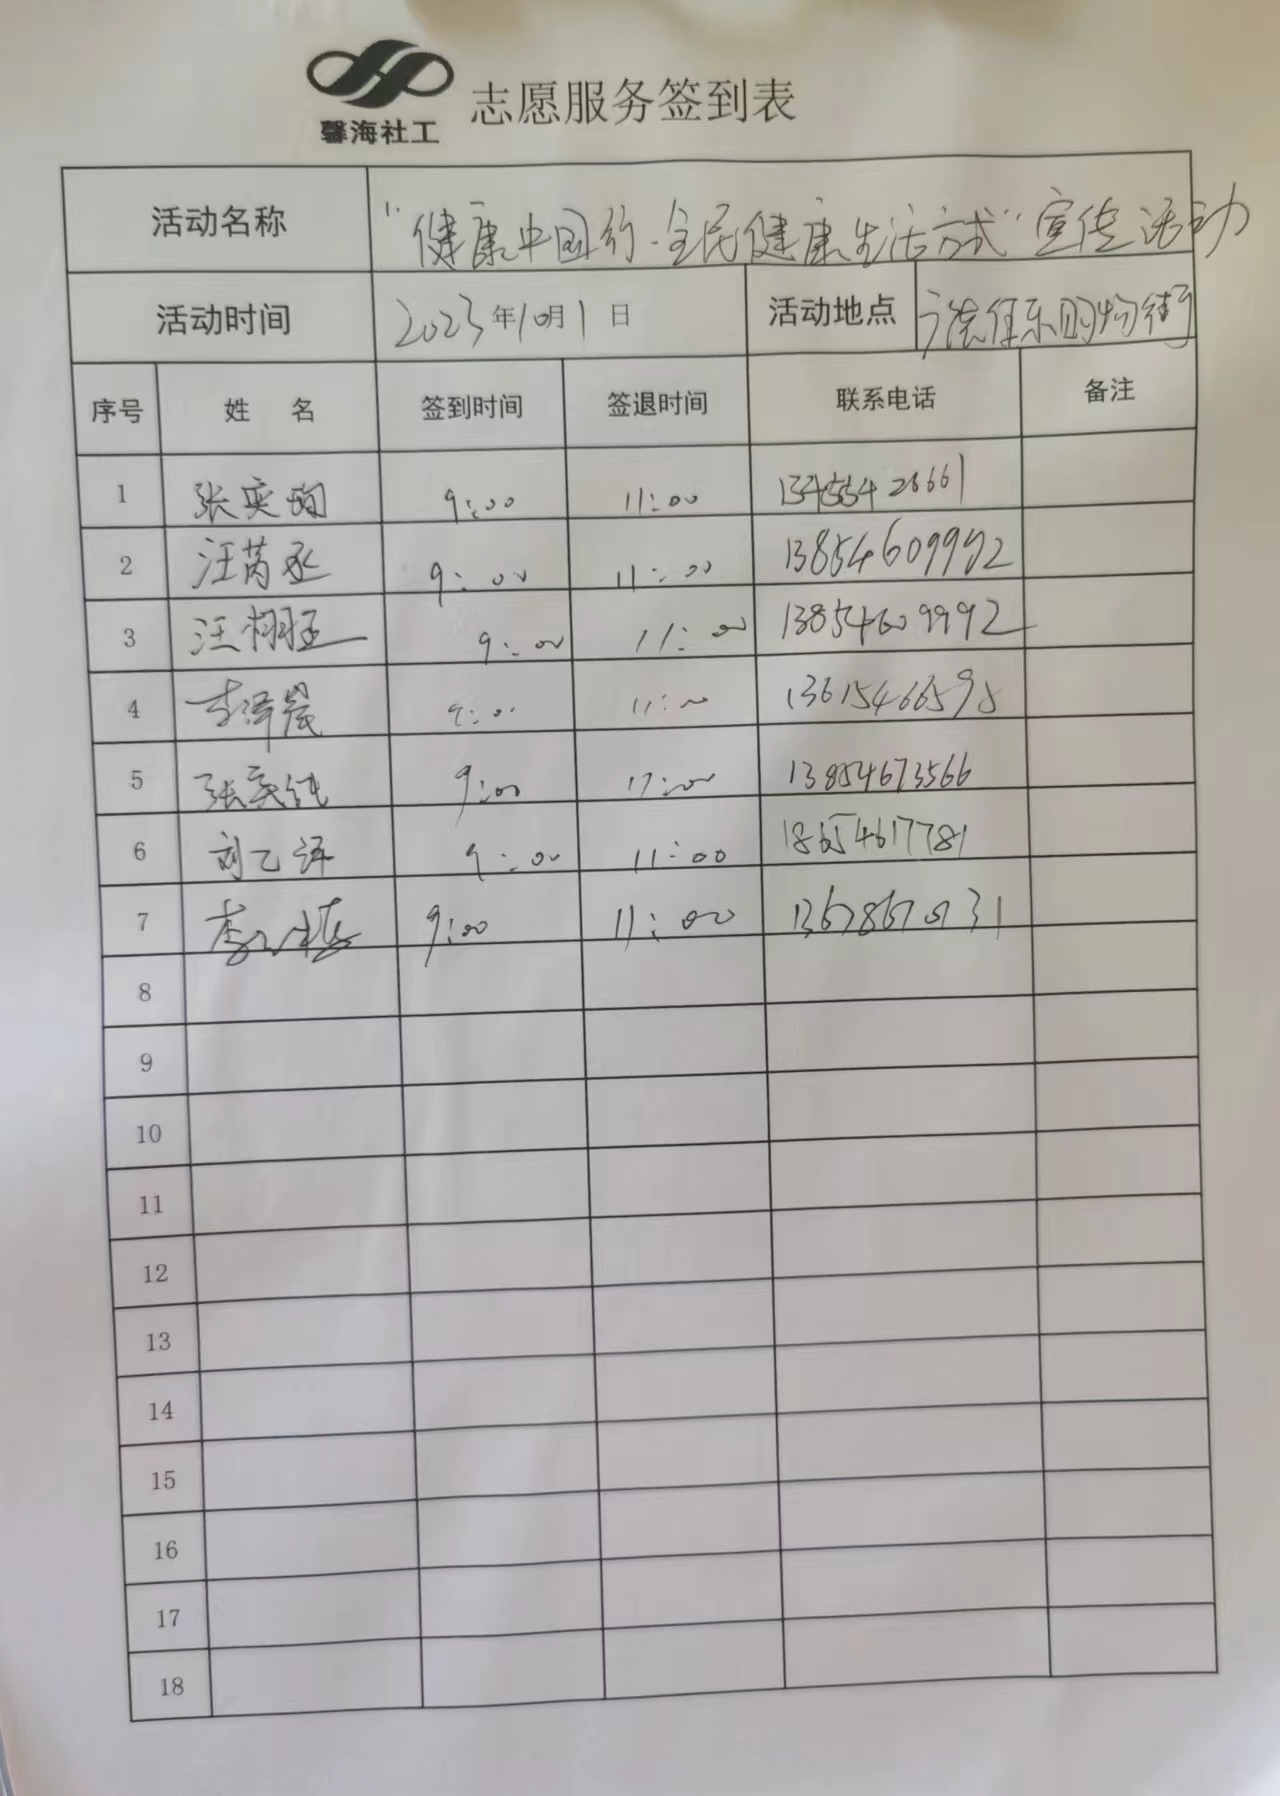 馨海社工
志愿服务签到表
活动名称 "健康中国行·全民健康生活方式"宣传活动
活动时间 2023年10月1日 活动地点
序号 姓 名 签到时间 签退时间 联系电话 备注
1 张奕 9:00 11:00
2 汪芮丞 9:00 11:00 13854609992
3 汪栩丞 9:00 11:00 13854609992
4 李泽晨 9:00 11:00
5 张奕纯 9:00 11:00 13854673566
6 刘乙译 9:00 11:00 18654617781
7 李 9:00 11:00
8
9
10
11
12
13
14
15
16
17
18